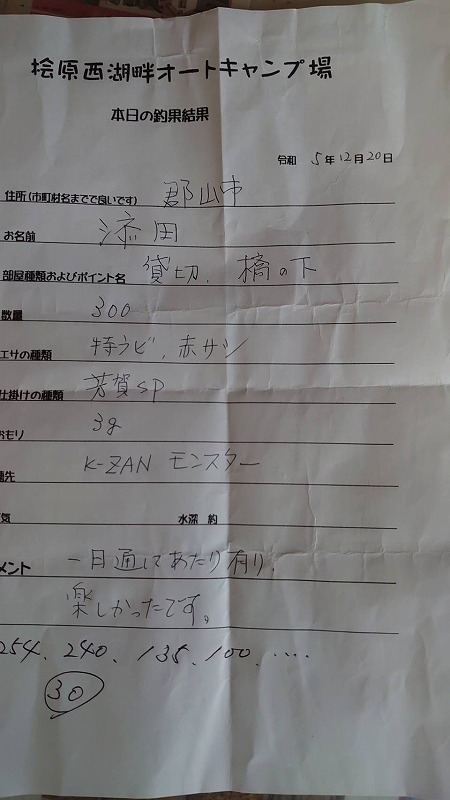 桧原西湖畔オートキャンプ場
本日の釣果結果
令和 5年12月20日
住所(市町村名までで良いです) 郡山市
お名前 添田
部屋種類およびポイント名 貸切、橋の下
数量 300
エサの種類 特ラビ、赤サシ
仕掛けの種類 芳賀SP
おもり 3g
穂先 K-ZAN モンスター
気 水深 約
メント 一日通してあたり有り、
楽しかったです。
254、240、135、100、‥‥
30